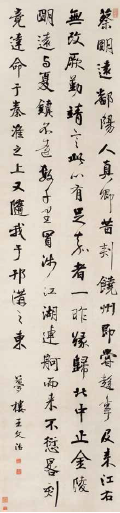 蔡明遠鄱陽人真卿昔刺饒州即嘗趨事及來江右
無改厥勤靖言此心有足嘉者一昨緣歸北中止金陵
明遠与夏鎮不遠數千里冒涉江湖連舸而來不愆晷刻
竟達命于秦淮之上又隨我于邗溝之東
夢樓王文治